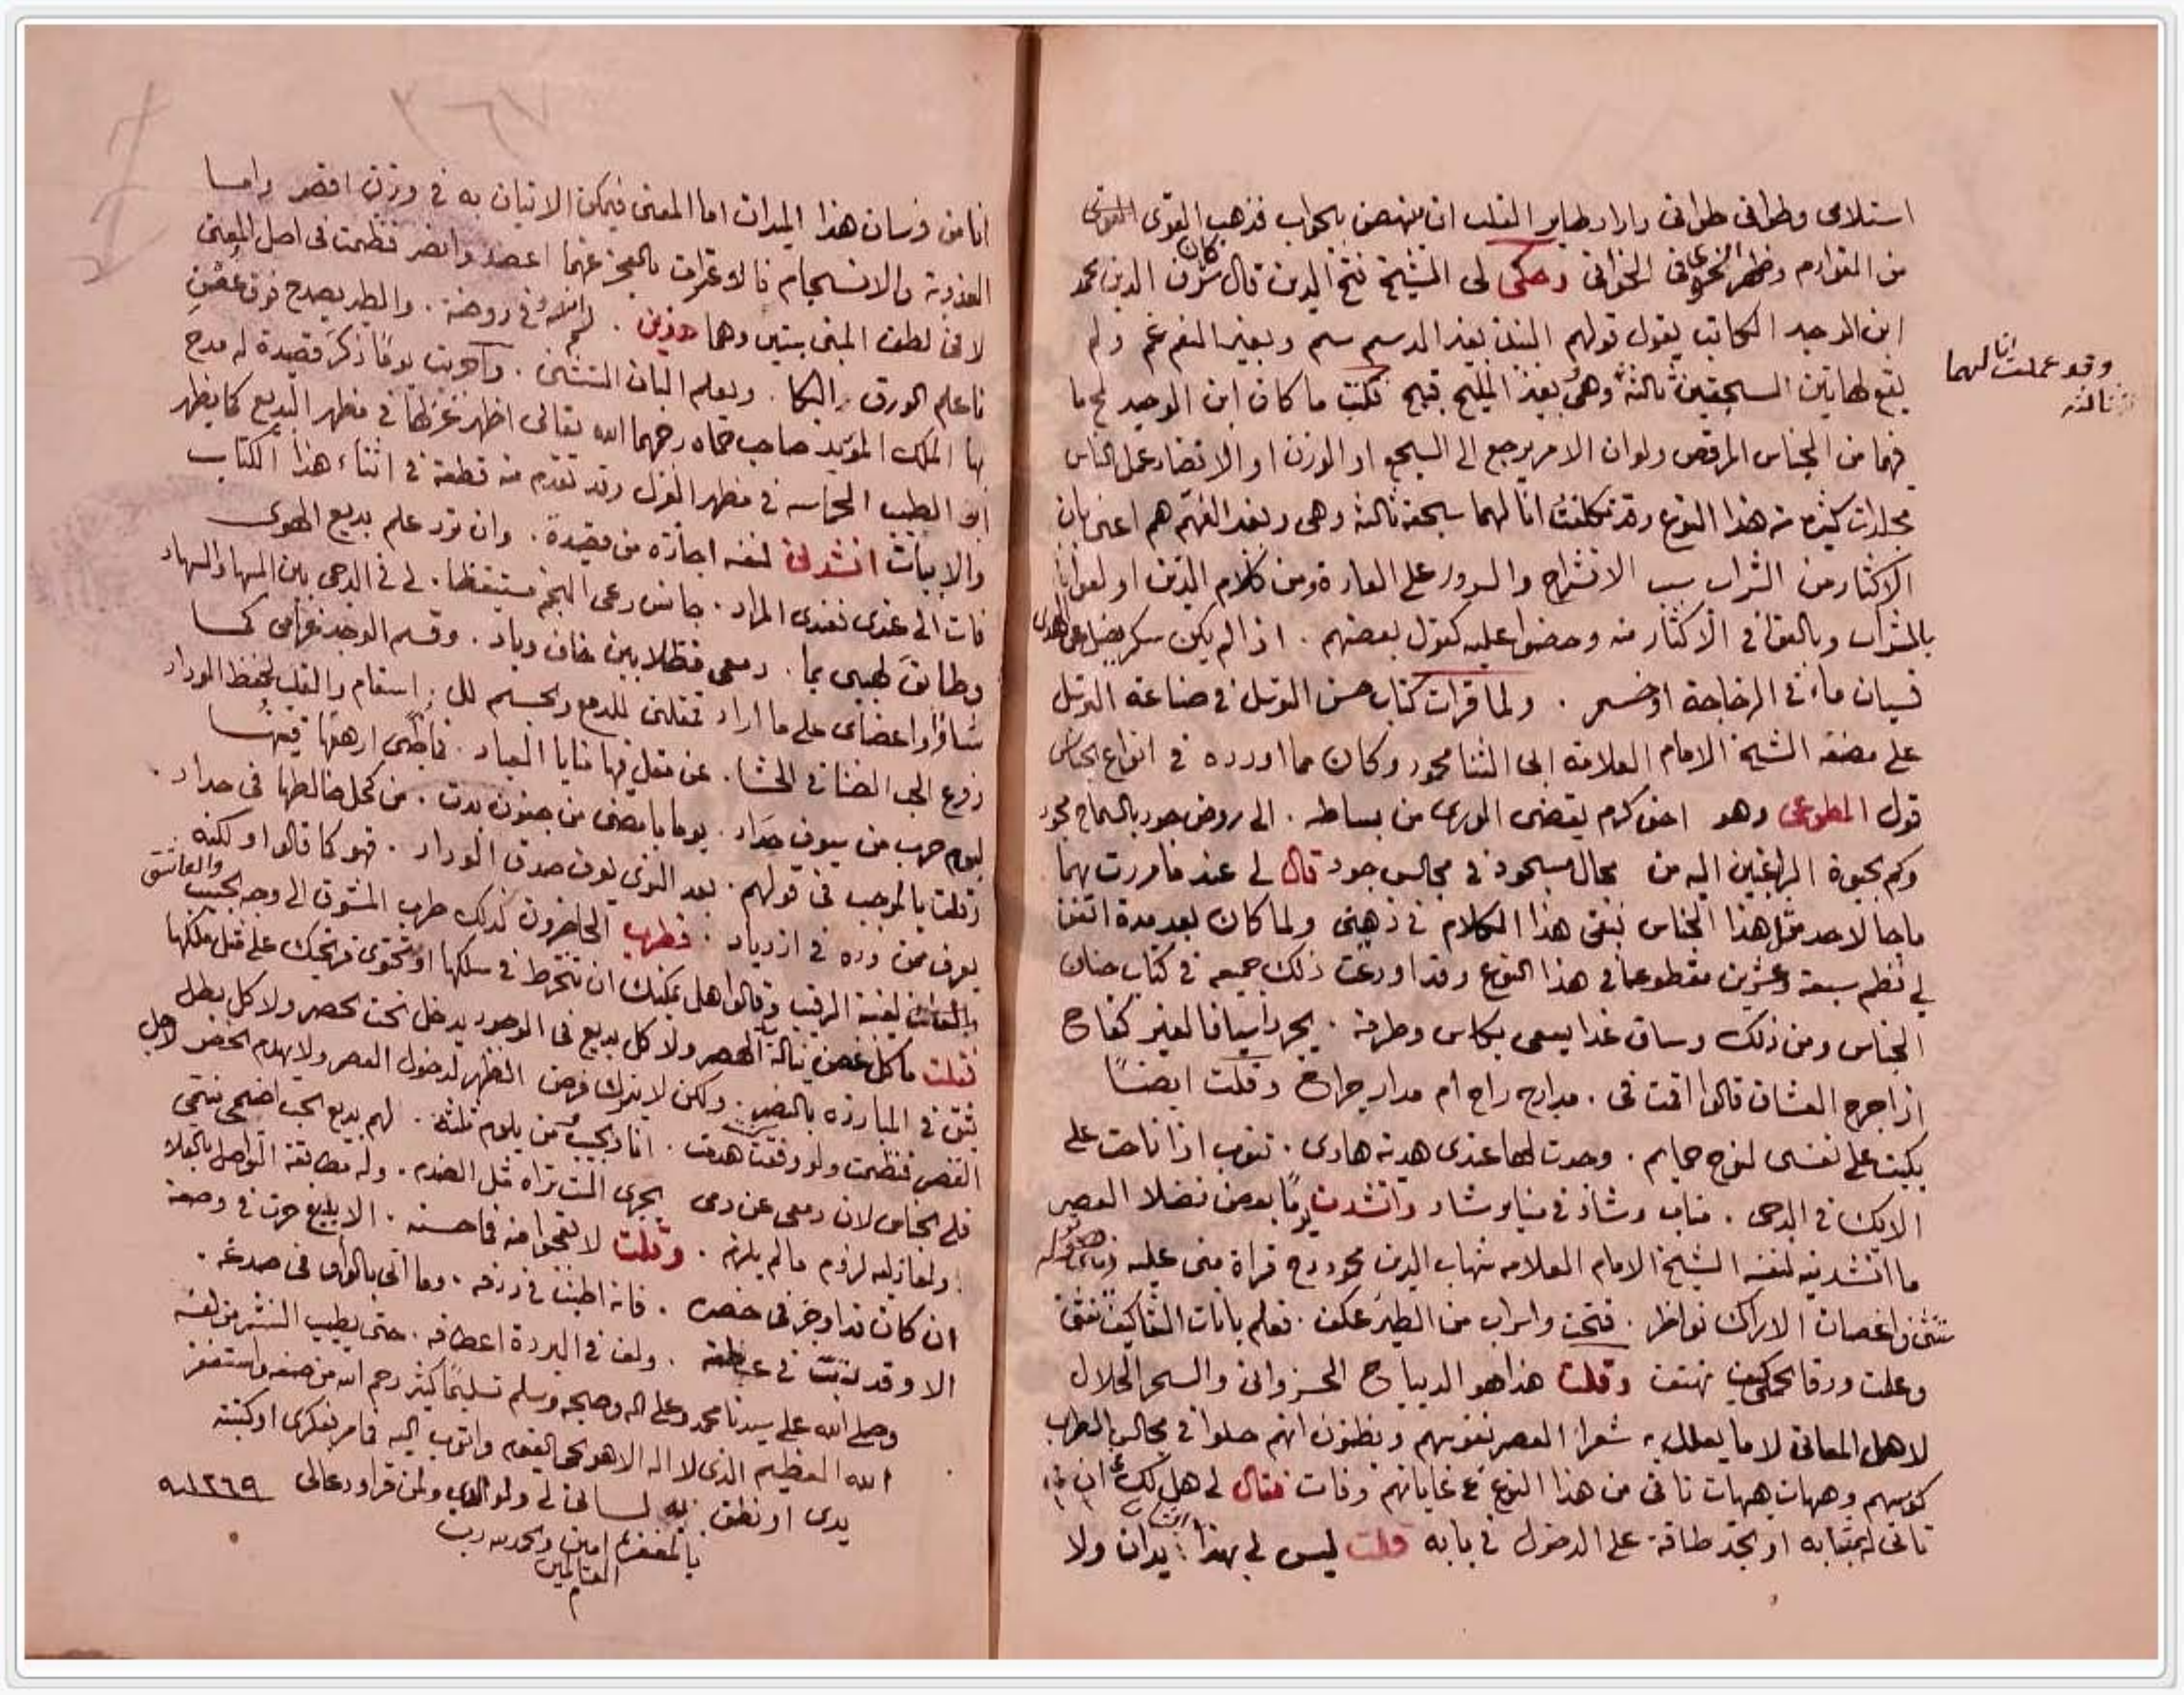 استلامى وطوافى طوافى واراد طاير القلب ان ينهض بجواب فذهب القوى القوى
من القوادم وظهر الخوافى وحكى لى الشيخ فتح الدين قال كان شرف الدين محمد
ابن الوحيد الكاتب يقول قولهم النبيذ بغير الدسم سم وبغير النغم غم ولم
يقع لهاتين السجعتين ثالثة وهى بغير المليح قبيح فكنت ما كان ابن الوحيد لمح ما
وقد عملت انا لهما
ثالثة
فيهما من الجناس المرقص ولو ان الامر يرجع الى السجع او الوزن او الاقتضاء عمل الناس
مجلدات كثيرة من هذا النوع وقد تكلفت انا لهما سجعة ثالثة وهى وبغير الفهم هم اعنى بان
الاكثار من الشراب سبب الانشراح والسرور على العادة ومن كلام الذين اولعوا
بالشراب وبالغوا فى الاكثار منه وحضوا عليه كقول بعضهم . اذا لم يكن سكر يضل عن الهدى
فسيان ماء فى الزجاجة او خمر . ولما قرات كتاب حسن التوسل فى صناعة الترسل
على مصنفه الشيخ الامام العلامة ابى الثنا محمود وكان مما اورده فى انواع الجناس
قول المطوعى وهو اخو كرم يفضى الورى من بساطه . الى روض جود بالسماح مجود
وكم بجباه الراغبين اليه من مجال سجود فى مجالس جود قال لى عند ما مررت بهما
ما جا لاحد مثل هذا الجناس فبقى هذا الكلام فى ذهنى ولما كان بعد مدة اتفق
لى نظم سبعة وعشرين مقطوعا فى هذا النوع وقد اودعت ذلك جميعه فى كتاب جنان
الجناس ومن ذلك وساق غدا يسعى بكاس وطرفه . يجرد اسيافا لغير كفاح
اذا جرح العشاق قالوا اقمت فى . مدارج راح ام مدار جراح وقلت ايضًا
بكيت على نفسى لنوح حمايم . وجدت لها عندى هدية هادى . تنوب اذا ناحت على
الايك فى الدجى . مناب رشاد فى منابر شاد وانشدت يومًا بعض فضلا العصر
ما انشدنيه لنفسه الشيخ الامام العلامه شهاب الدين محمود رح قراة منى عليه
تثنى واغصان الاراك نواظر . فنحت واسراب من الطير عكف . فعلم بانات النقا كيف تنثنى
وعلمت ورقا الحمى كيف تهتف وقلت هذا هو الديباج الخسروانى والسحر الحلال
لاهل المعانى لا ما يعلل به شعرا العصر نفوسهم ويظنون انهم جلوا فى مجالس الطرب
كؤسهم وهيهات هيهات ناى من هذا النوع عن غاياتهم وفات فقال لى هل لك ان
تاتى لى بمثاله او تجد طاقة على الدخول فى بابه قلت ليس لى بهذا يدان ولا
انا من فرسان هذا الميدان اما المعنى فيمكن الاتيان به فى وزن اقصر واما
العذوبة والانسجام فالاعتراف بالعجز عنهما اعصر وانصر فنظمت فى اصل المعنى
لا فى لطف المبنى بيتين وهما . لم انسه فى روضة . والطير يصدح فوق غصن
فاعلم الورق البكا . ويعلم البان التثنى . واجريت يومًا ذكر قصيدة له مدح
بها الملك المؤيد صاحب حماه رحمهما الله تعالى اظهر غزلها فى مظهر البديع كما يظهر
ابو الطيب الحماسه فى مظهر الغزل وقد تقدم منه قطعة فى اثناء هذا الكتاب
والابيات انشدنى لنفسه اجازة من قصيدة . وان ترد علم بديع الهوى
فات الى عندى فعندى المراد . جانس رعى النجم مستيقظا . لى فى الدجى بين السها والسهاد
وطابق طبيبى بما . دمعى فظلا بين خاف وباد . وقسم الوجد غرامى كما
شا فى اعضاى على ما اراد فمقلتى للدمع والجسم لل . اسقام والقلب لحفظ الوداد
زرع الحب الضنا فى الحشا . عن مقل فيها منايا العباد . فاضى ارهقها فيهما
ليوم حرب من سيوف حداد . يوما بامضى من جفون بدت . من كحل خالطها فى حداد .
وقلت بالموجب فى قولهم . بعد النوى يعرف صدق الوداد . فهو كما قالوا ولكنه
يعرف من وده فى ازدياد . فطرب الحاضرون لذلك طرب المشوق الى وجه الحبيب والعاشق
لغيبة الرقيب وقالوا هل يمكنك ان تنخرط فى سلكها او تحتوى قريحتك على مثل ملكها
فقلت ما كل غصن يناله الهصر ولا كل بديع فى الوجود يدخل تحت الحصر ولا كل بطل
يثق فى المبارزه بالنصر . ولكن لا يترك فرض الظهر لدخول العصر ولا يهدم الخصر لاجل
القصر فنظمت ولو وفقت هدمت . انا والحبيب ومن يلوم ثلثة . لهم بديع الحب اضحى ينتمى
فلى الجناس لان دمعى عن دمى يجرى الست تراه مثل العندم . وله مطابقة التواصل بالقلا
ولعاذليه لزوم ما لم يلزم . وقلت لا تعجبوا منه فى حسنه . الا بليغ حرت فى وصفه
ان كان قد اوجز فى خصره . فانه اطنب فى ردفه . وما اتى بالواو فى صدغه .
الا وقد رتبت فى عطفه . ولف فى البردة اعطافه . حتى يطيب النشر من لفه
وصلى الله على سيدنا محمد وعلى اله وصحبه وسلم تسليمًا كثير رحم الله من صنفه واستغفر
الله العظيم الذى لا اله الا هو الحى القيوم واتوب اليه مما مر بفكرى او كتبته
يدى او نطق به لسانى لى ولوالدى ولمن قرا ودعا لى ١٢٦٩ سنه
بالمغفرة امين والحمد لله رب
العالمين
م